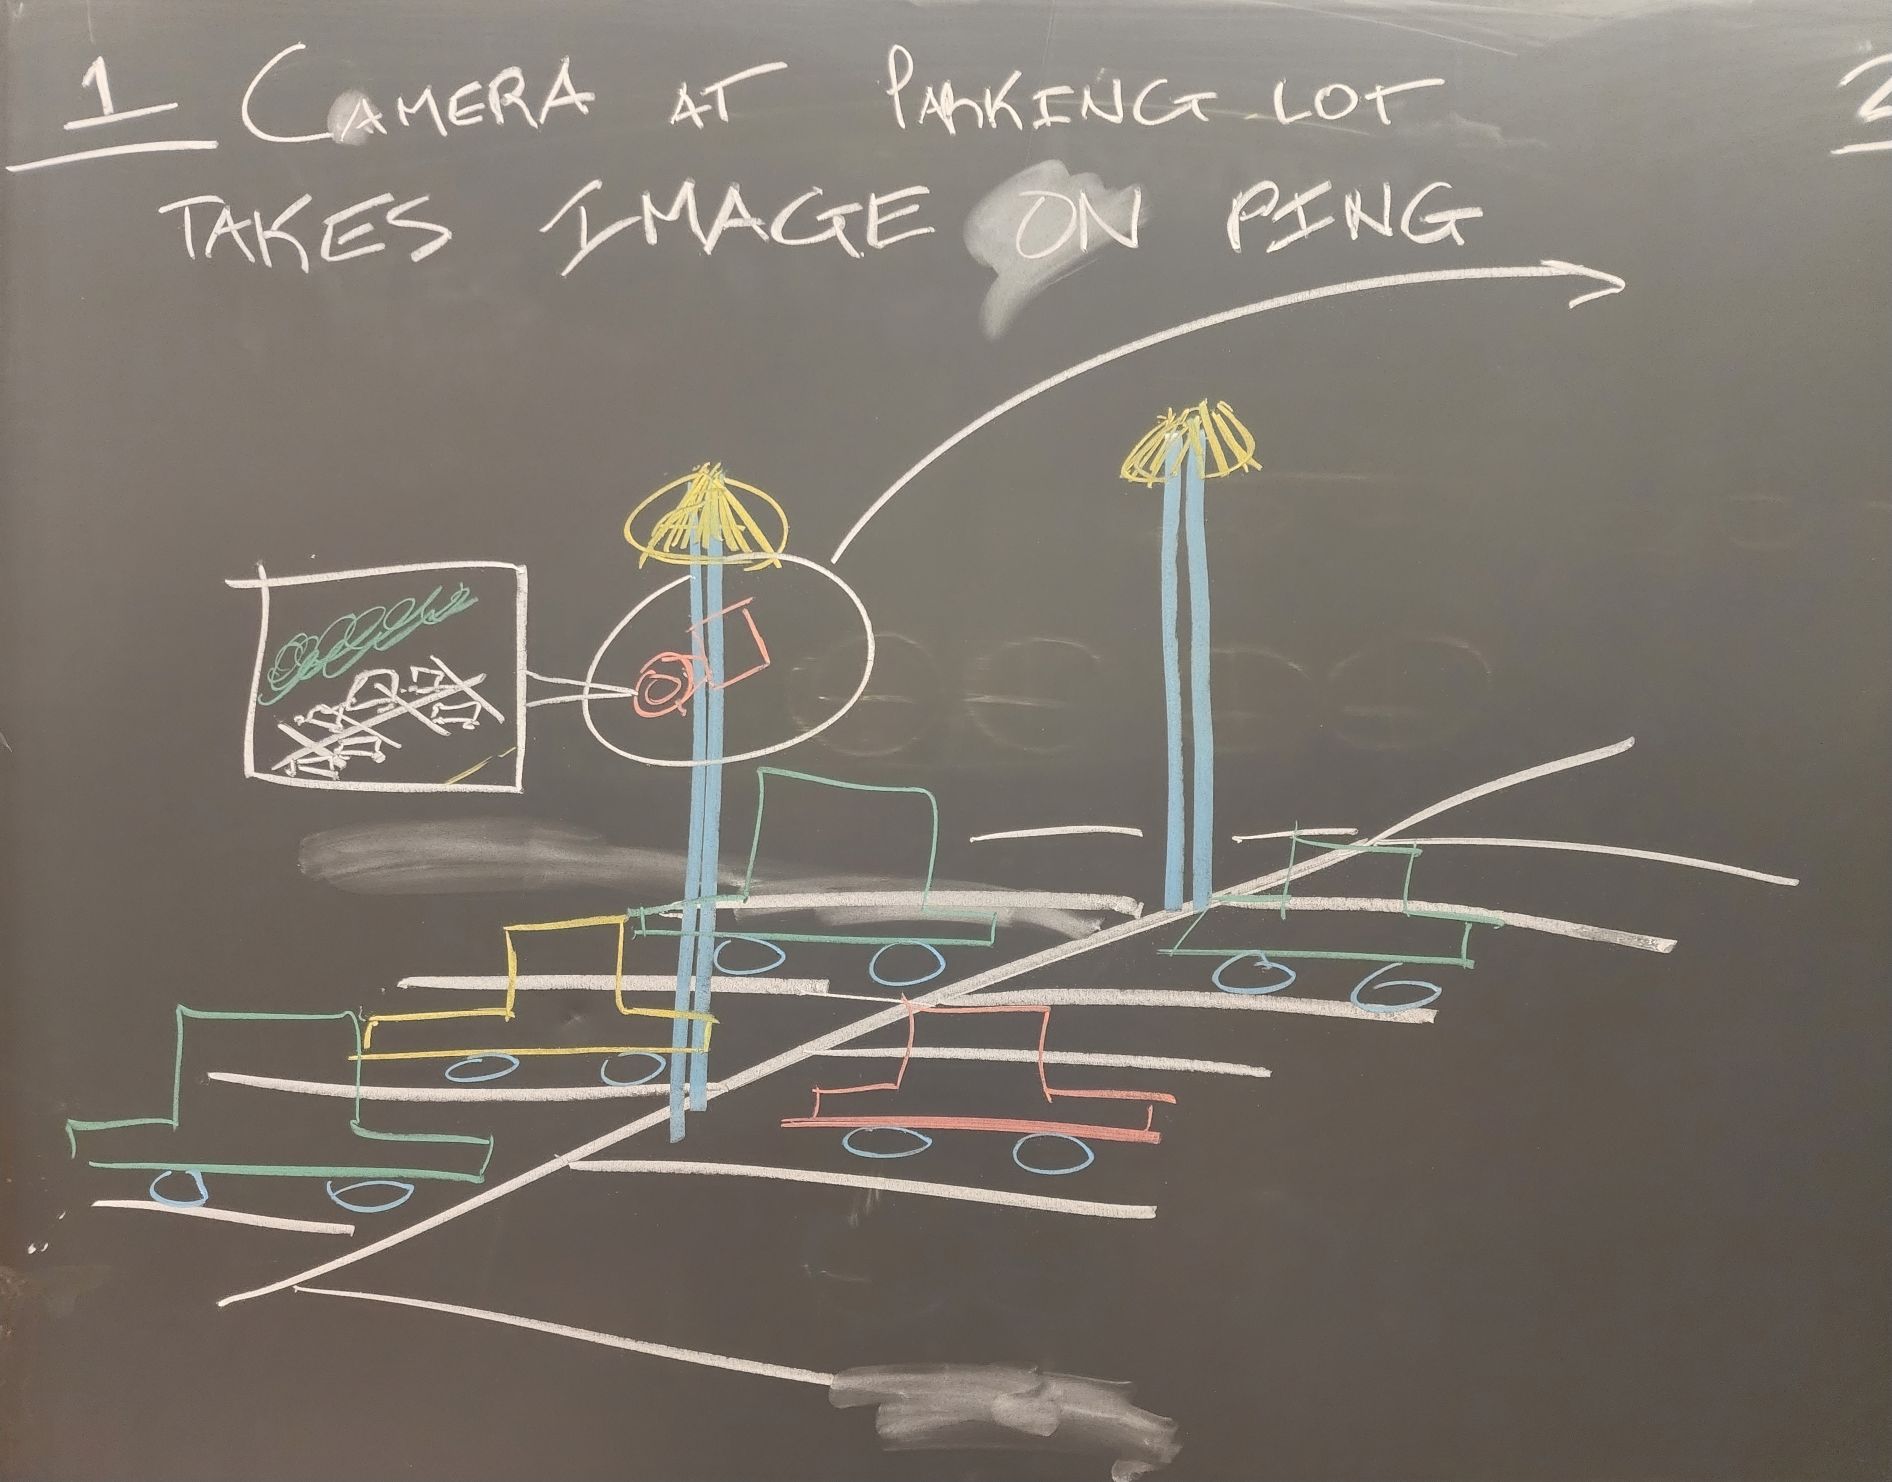 1 CAMERA AT PARKING LOT
TAKES IMAGE ON PING
2